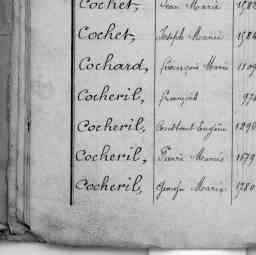 Cochet, Jean Marie
Cochet, Joseph Marie 1584
Cochard, François Marie 1109
Cocheril, François
Cocheril, Constant Eugène 1296
Cocheril, Pierre Marie 1679
Cocheril, Marie 1780